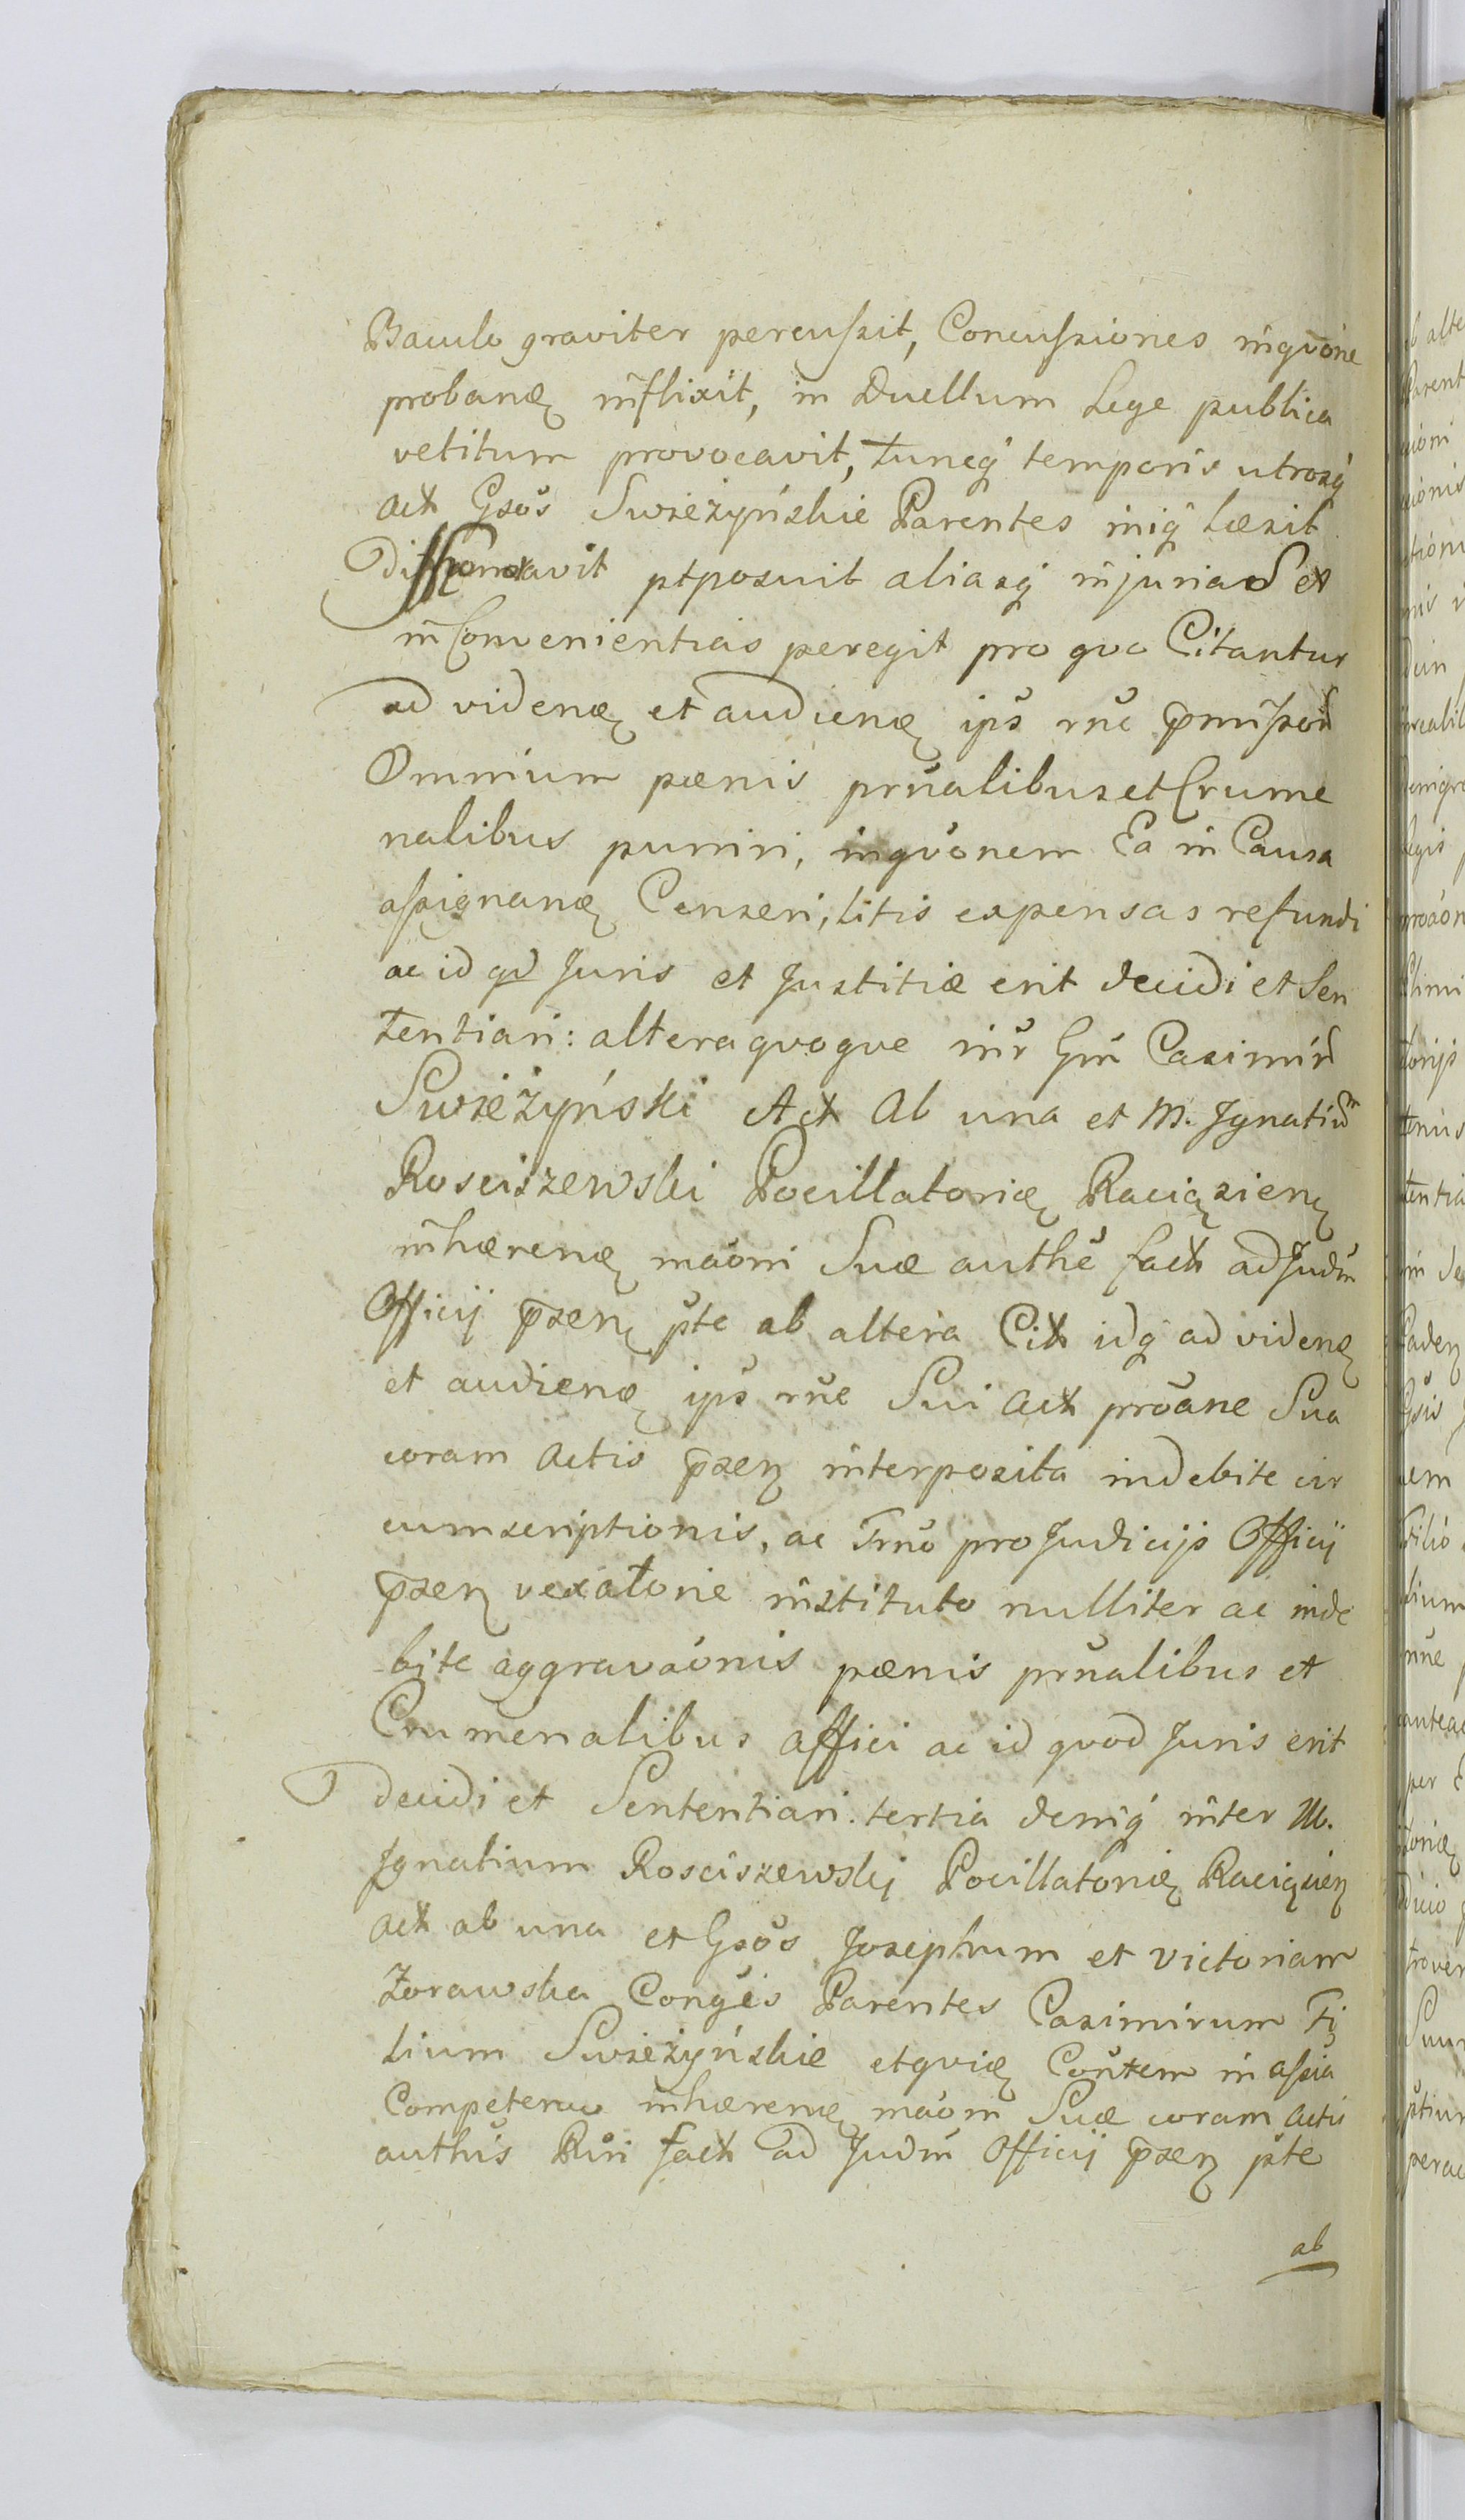 Baculo graviter percussit, Concussiones inqvone
probanđ inflixit, in Duellum Lege publica
vetitum provocavit, tuncq temporis utrosq
act Gsos Swieżyńskie Parentes iniq læsit
Diffamavit ptposuit aliasq injurias et
in Convenientias peregit pro qvo Citantur
ad videnđ et audienđ ips rne pmissor
Omnium pœnis prnalibus et Crume
nalibus puniri, inqvonem Ea in Causa
assignanđ Censeri, litis expensas refundi
ac id qd Juris et Justitiæ erit decidi et Sen
tentiari: altera qvoqve inr Gm Casimir
Swieżyński Act Ab una et M. Ignatium
Rosciszewski Pocillatoriđ Raciązienȝ
inhærenđ maoni Suæ authe fact ad Judm
Officij psenȝ pte ab altera Cit idq ad videnđ
et audienđ ips rne Sui act proane Sua
coram Actis psenȝ interposita indebite cir
cumscriptionis, ac Trno pro Judicijs Officij
psenȝ vexatorie instituto nulliter ac inde
bite aggravaonis pœnis prnalibus et
Crumenalibus affici ac id qvod Juris erit
decidi et Sententiari. tertia deniq inter M.
Ignatium Rosciszewskj Pocillatoriđ Raciązienȝ
act ab una et Gsos Josephum et Victoriam
Zorawska Conges Parentes Casimirum Fi
lium Swieżyńskie
inhærenđ maoni Suæ coram Actis
auths Rvri fact ad Judm Officij psenȝ pte
ab